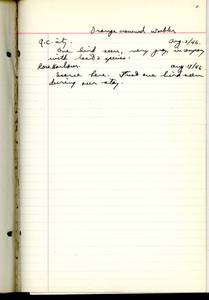 Orange crowned Warbler
Q.C. City. Aug. 2/46.
One bird seen, very gray in company
with
Rose Harbour. Aug 17/46
Scarce here. Just one bird seen
during our stay.